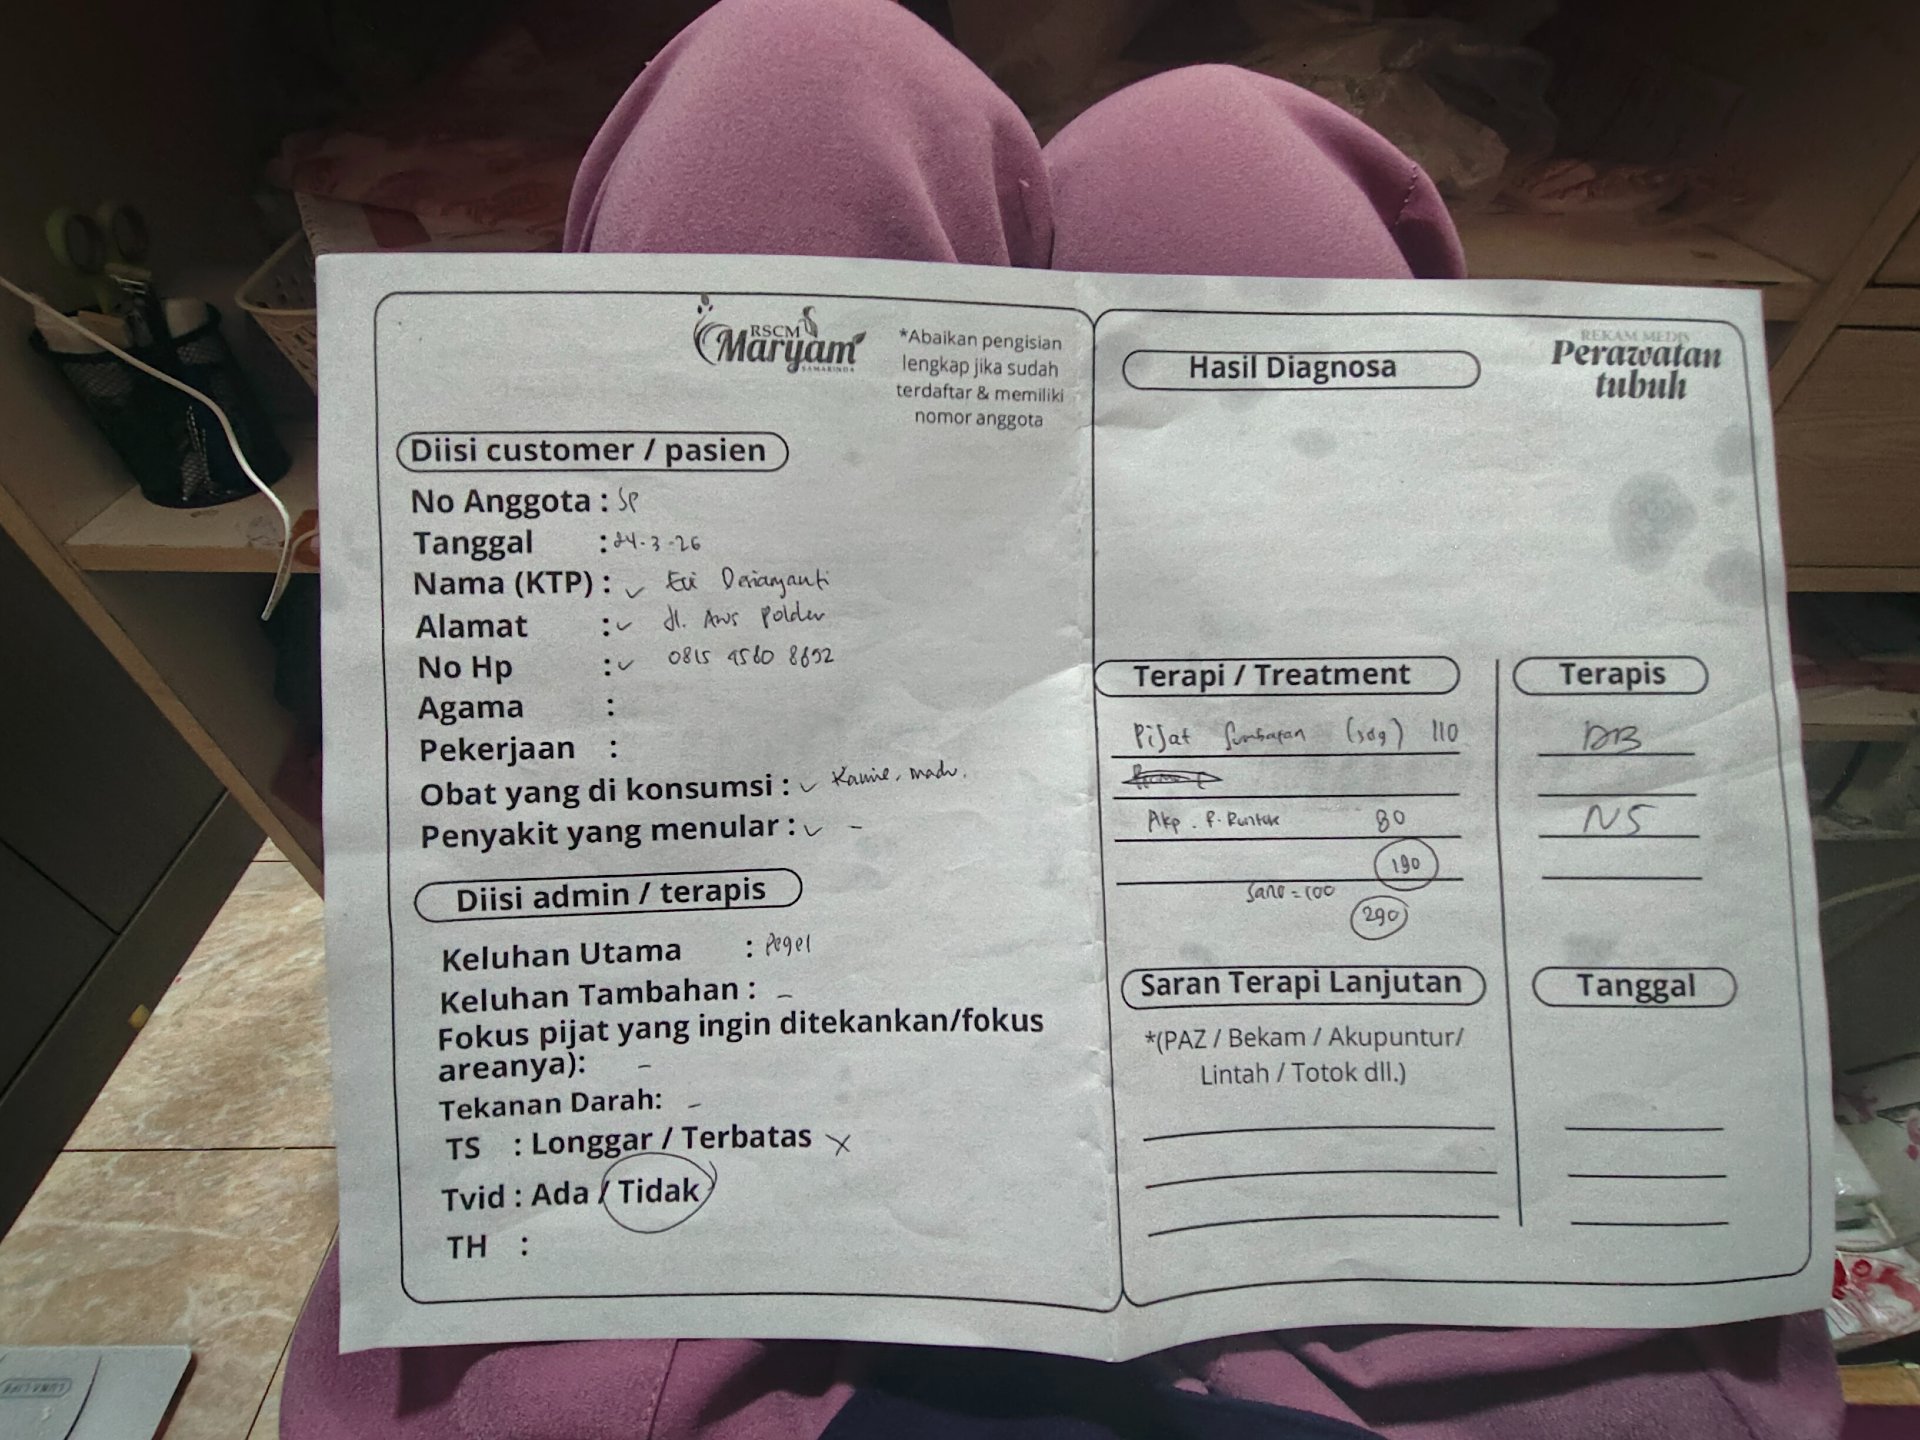 RSCM
Maryam
SAMARINDA
*Abaikan pengisian
lengkap jika sudah
terdaftar & memiliki
nomor anggota
Diisi customer / pasien
No Anggota : SP
Tanggal : 24-3-26
Nama (KTP) : ✓ Evi
Alamat : ✓ Jl. Aws Polder
No Hp : ✓ 0815 4560 8692
Agama :
Pekerjaan :
Obat yang di konsumsi : ✓ madu.
Penyakit yang menular : ✓ -
Diisi admin / terapis
Keluhan Utama : Pegel
Keluhan Tambahan : -
Fokus pijat yang ingin ditekankan/fokus
areanya): -
Tekanan Darah: -
TS : Longgar / Terbatas X
Tvid : Ada / Tidak
TH :
Hasil Diagnosa
REKAM MEDIS
Perawatan
tubuh
Terapi / Treatment
Pijat 110
Akp. 80
190
= 100
290
Terapis
NS
Saran Terapi Lanjutan
*(PAZ / Bekam / Akupuntur/
Lintah / Totok dll.)
Tanggal